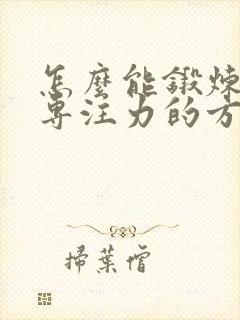 怎麼能鍛煉
專注力的方
掃葉僧